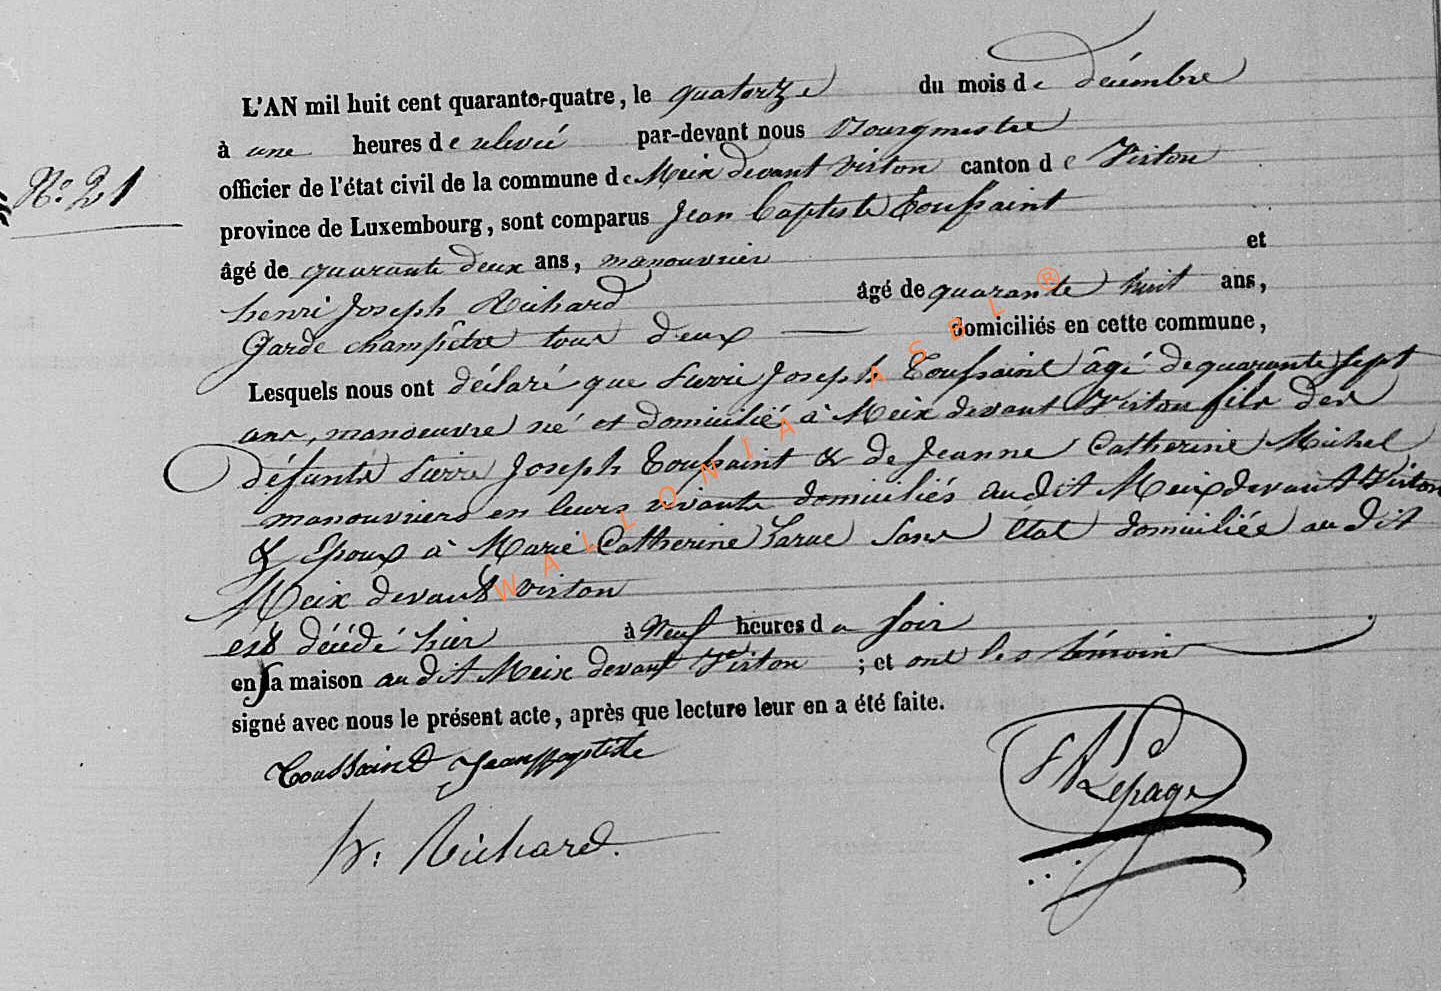 L'AN mil huit cent quarante-quatre, le quatorze du mois de décembre
à une heures de relevée par-devant nous Bourgmestre
N° 21
officier de l'état civil de la commune de Meix devant Virton canton de Virton
province de Luxembourg, sont comparus Jean Baptiste Toussaint
âgé de quarante deux ans, manouvrier et
henri Joseph Richard âgé de quarante huit ans,
Garde champêtre tous deux domiciliés en cette commune,
Lesquels nous ont déclaré que Pierre Joseph Toussaint âgé de quarante sept
ans, manoeuvre né et domicilié à Meix devant Virton fils des
défunts Pierre Joseph Toussaint & de Jeanne Catherine Michel
manouvriers en leurs vivants domiciliés au dit Meix devant Virton
& Epoux à Marie Catherine Larue sans état domiciliée au dit
Meix devant Virton
est décédé hier à Neuf heures du soir
en sa maison au dit Meix devant Virton ; et ont les témoin
signé avec nous le présent acte, après que lecture leur en a été faite.
Toussaint Jean Baptiste
Lepage
h: Richard
WALLONIA ASBL ®